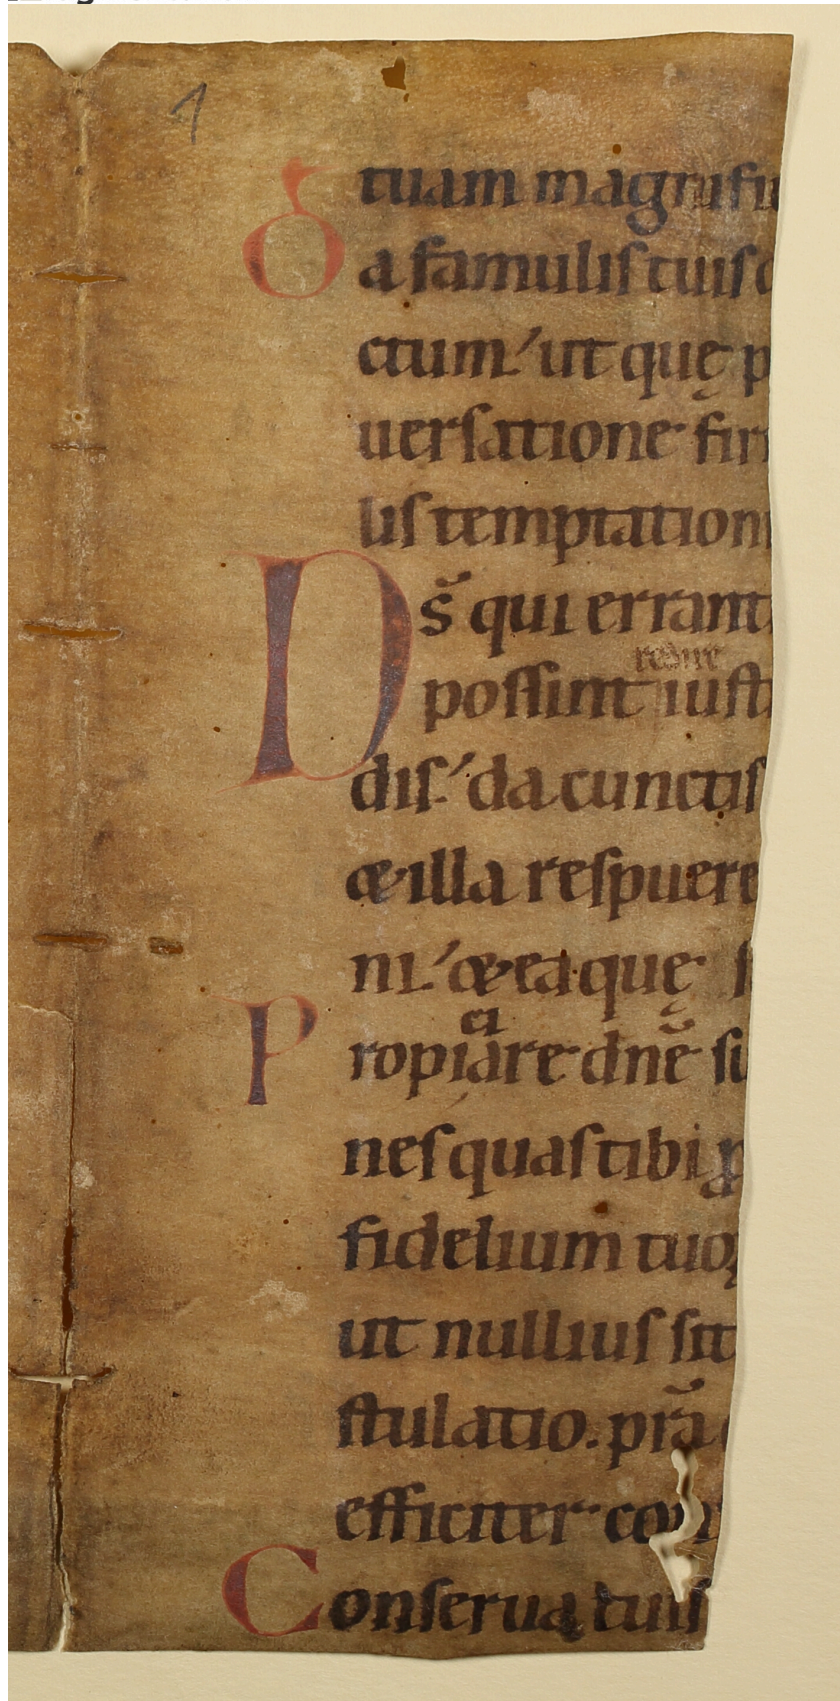 1
tuam magnifi
D a famulis tuis
ctum ut quę p
uersatione fir
lis temptation
Ds̄ qui errant
redire
possint iusti
dis da cunctis
& illa respuere
ni & ea quę s
ei
Propiare dnē su
nes quas tibi p
fidelium tuoꝝ
ut nullius sit
stulatio. prā
efficiter con
Conserua tuis